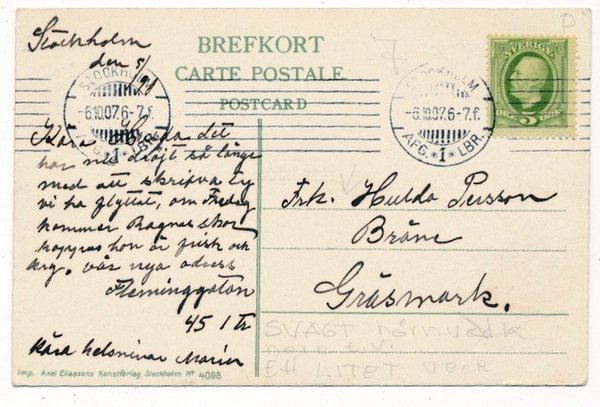 Stockholm
den 5/
BREFKORT
CARTE POSTALE
POSTCARD
STOCKHOLM
-6.10.07.6-7.f.
AFG. *1* LBR.
STOCKHOLM
-6.10.07.6-7.f.
AFG. *1* LBR.
SVERIGE
5
Kära Hulda det
har nu dröjt så länge
med att skrifva ty
vi ha flyttat, om Fredag
kommer Ragnas skor
hoppas hon är frisk och
kry. vår nya adress
Fleminggatan
45 1 tr
kära helsningar Maria
Frk. Hulda Persson
Bråne
Gräsmark.
SVAGT hörnveck
ETT LITET VECK
Imp. Axel Eliassons Konstförlag. Stockholm Nº 4098
D
7